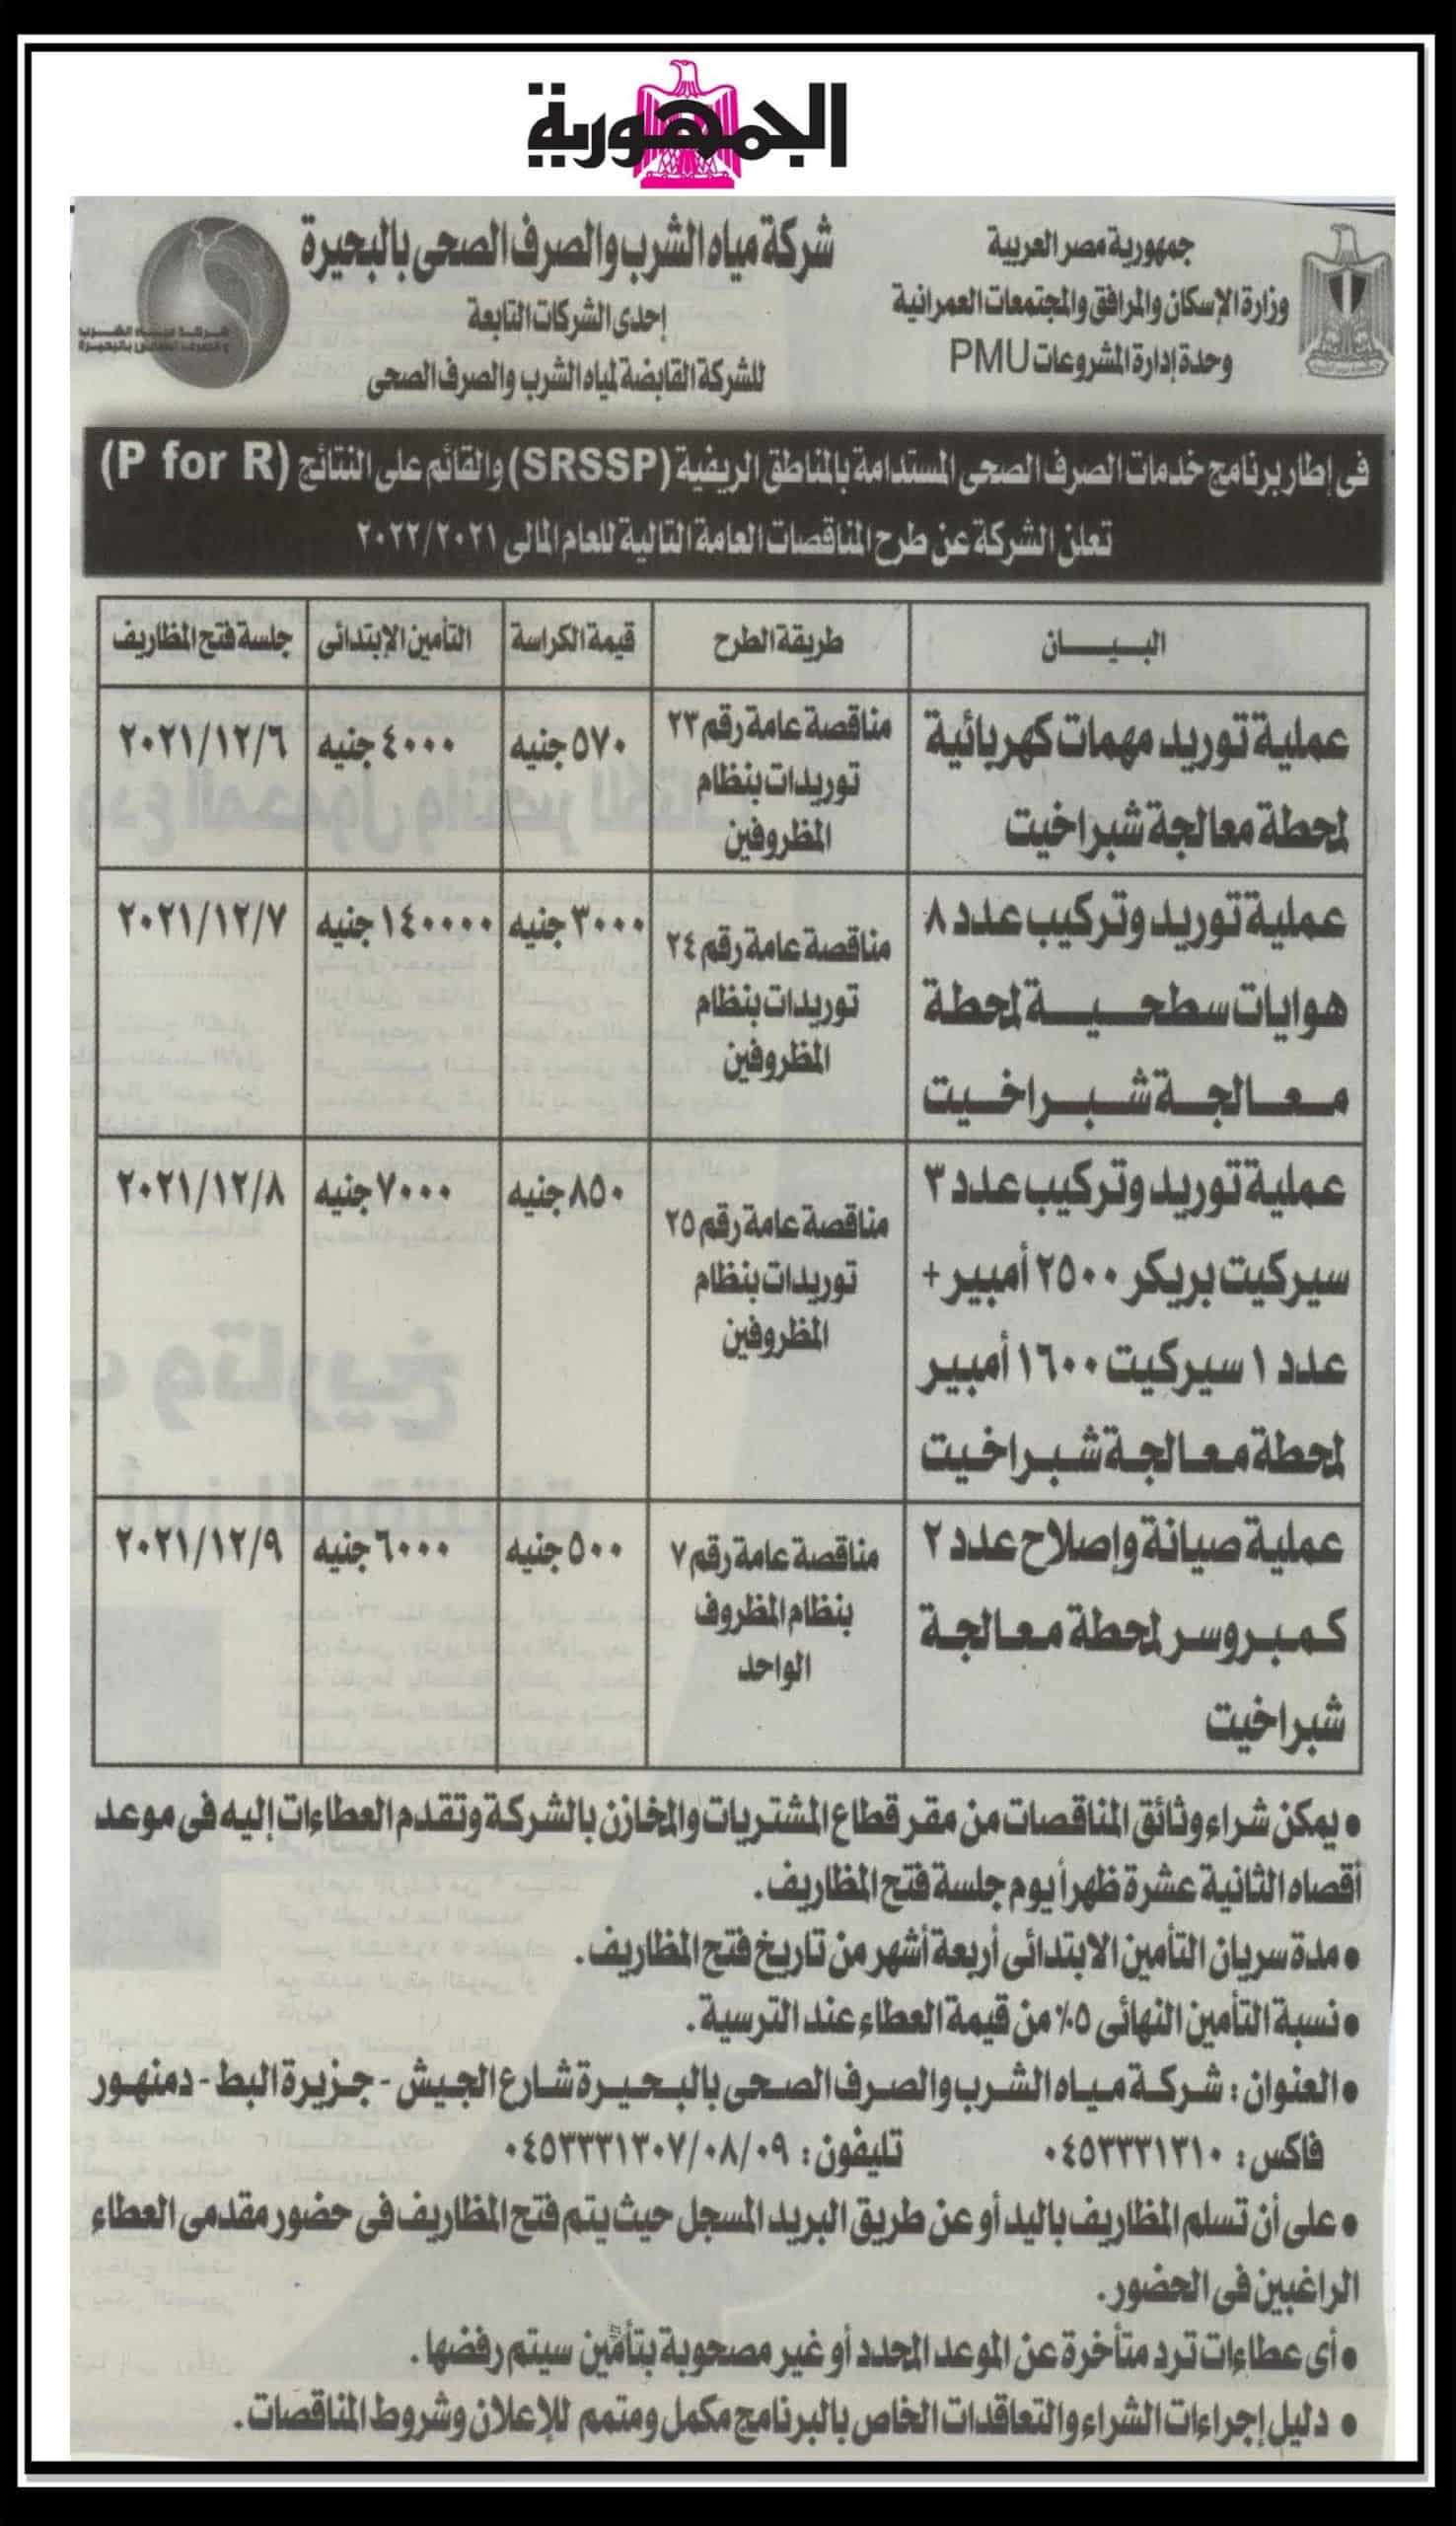 الجمهورية
جمهورية مصر العربية
وزارة الإسكان والمرافق والمجتمعات العمرانية
وحدة إدارة المشروعات PMU
شركة مياه الشرب والصرف الصحى بالبحيرة
إحدى الشركات التابعة
للشركة القابضة لمياه الشرب والصرف الصحى
شركة مياه الشرب
والصرف الصحى بالبحيرة
فى إطار برنامج خدمات الصرف الصحى المستدامة بالمناطق الريفية (SRSSP) والقائم على النتائج (P for R)
تعلن الشركة عن طرح المناقصات العامة التالية للعام المالى ٢٠٢٢/٢٠٢١
البيـــان	طريقة الطرح	قيمة الكراسة	التأمين الإبتدائى	جلسة فتح المظاريف
عملية توريد مهمات كهربائية
لمحطة معالجة شبراخيت
مناقصة عامة رقم ٢٣
توريدات بنظام
المظروفين
٥٧٠ جنيه	٤٠٠٠ جنيه	٢٠٢١/١٢/٦
عملية توريد وتركيب عدد ٨
هوايات سطحيـــة لمحطة
معالجة شبراخيت
مناقصة عامة رقم ٢٤
توريدات بنظام
المظروفين
٣٠٠٠ جنيه	١٤٠٠٠٠ جنيه	٢٠٢١/١٢/٧
عملية توريد وتركيب عدد ٣
سيركيت بريكر ٢٥٠٠ أمبير +
عدد ١ سيركيت ١٦٠٠ أمبير
لمحطة معالجة شبراخيت
مناقصة عامة رقم ٢٥
توريدات بنظام
المظروفين
٨٥٠ جنيه	٧٠٠٠ جنيه	٢٠٢١/١٢/٨
عملية صيانة وإصلاح عدد ٢
كمبروسر لمحطة معالجة
شبراخيت
مناقصة عامة رقم ٧
بنظام المظروف
الواحد
٥٠٠ جنيه	٦٠٠٠ جنيه	٢٠٢١/١٢/٩
• يمكن شراء وثائق المناقصات من مقر قطاع المشتريات والمخازن بالشركة وتقدم العطاءات إليه فى موعد
أقصاه الثانية عشرة ظهراً يوم جلسة فتح المظاريف.
• مدة سريان التأمين الابتدائى أربعة أشهر من تاريخ فتح المظاريف.
• نسبة التأمين النهائى ٥٪ من قيمة العطاء عند الترسية.
• العنوان: شركة مياه الشرب والصرف الصحى بالبحيرة شارع الجيش - جزيرة البط - دمنهور
فاكس: ٠٤٥٣٣٣١٣١٠ تليفون: ٠٤٥٣٣٣١٣٠٧/٠٨/٠٩
• على أن تسلم المظاريف باليد أو عن طريق البريد المسجل حيث يتم فتح المظاريف فى حضور مقدمى العطاء
الراغبين فى الحضور.
• أى عطاءات ترد متأخرة عن الموعد المحدد أو غير مصحوبة بتأمين سيتم رفضها.
• دليل إجراءات الشراء والتعاقدات الخاص بالبرنامج مكمل ومتمم للإعلان وشروط المناقصات.